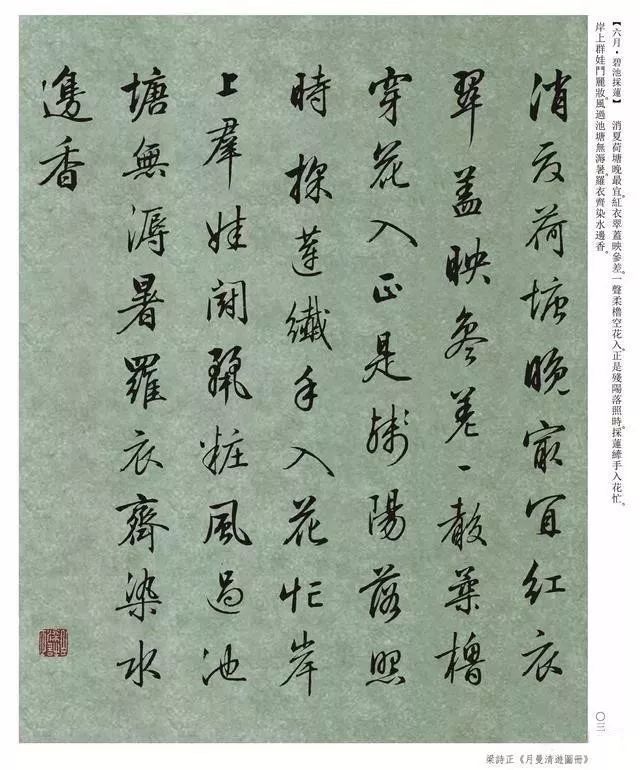 【六月·碧池採蓮】　消夏荷塘晚最宜。紅衣翠蓋映參差。一聲柔櫓空花入。正是殘陽落照時。採蓮縴手入花忙。
岸上群娃鬥麗妝。風過池塘無海暑。羅衣齊染水邊香。
消夏荷塘晚最宜紅衣
翠蓋映參差一聲柔櫓
穿花入正是殘陽落照
時採蓮纖手入花忙岸
上羣娃鬪麗粧風過池
塘無溽暑羅衣齊染水
邊香
梁詩正《月曼清遊圖冊》